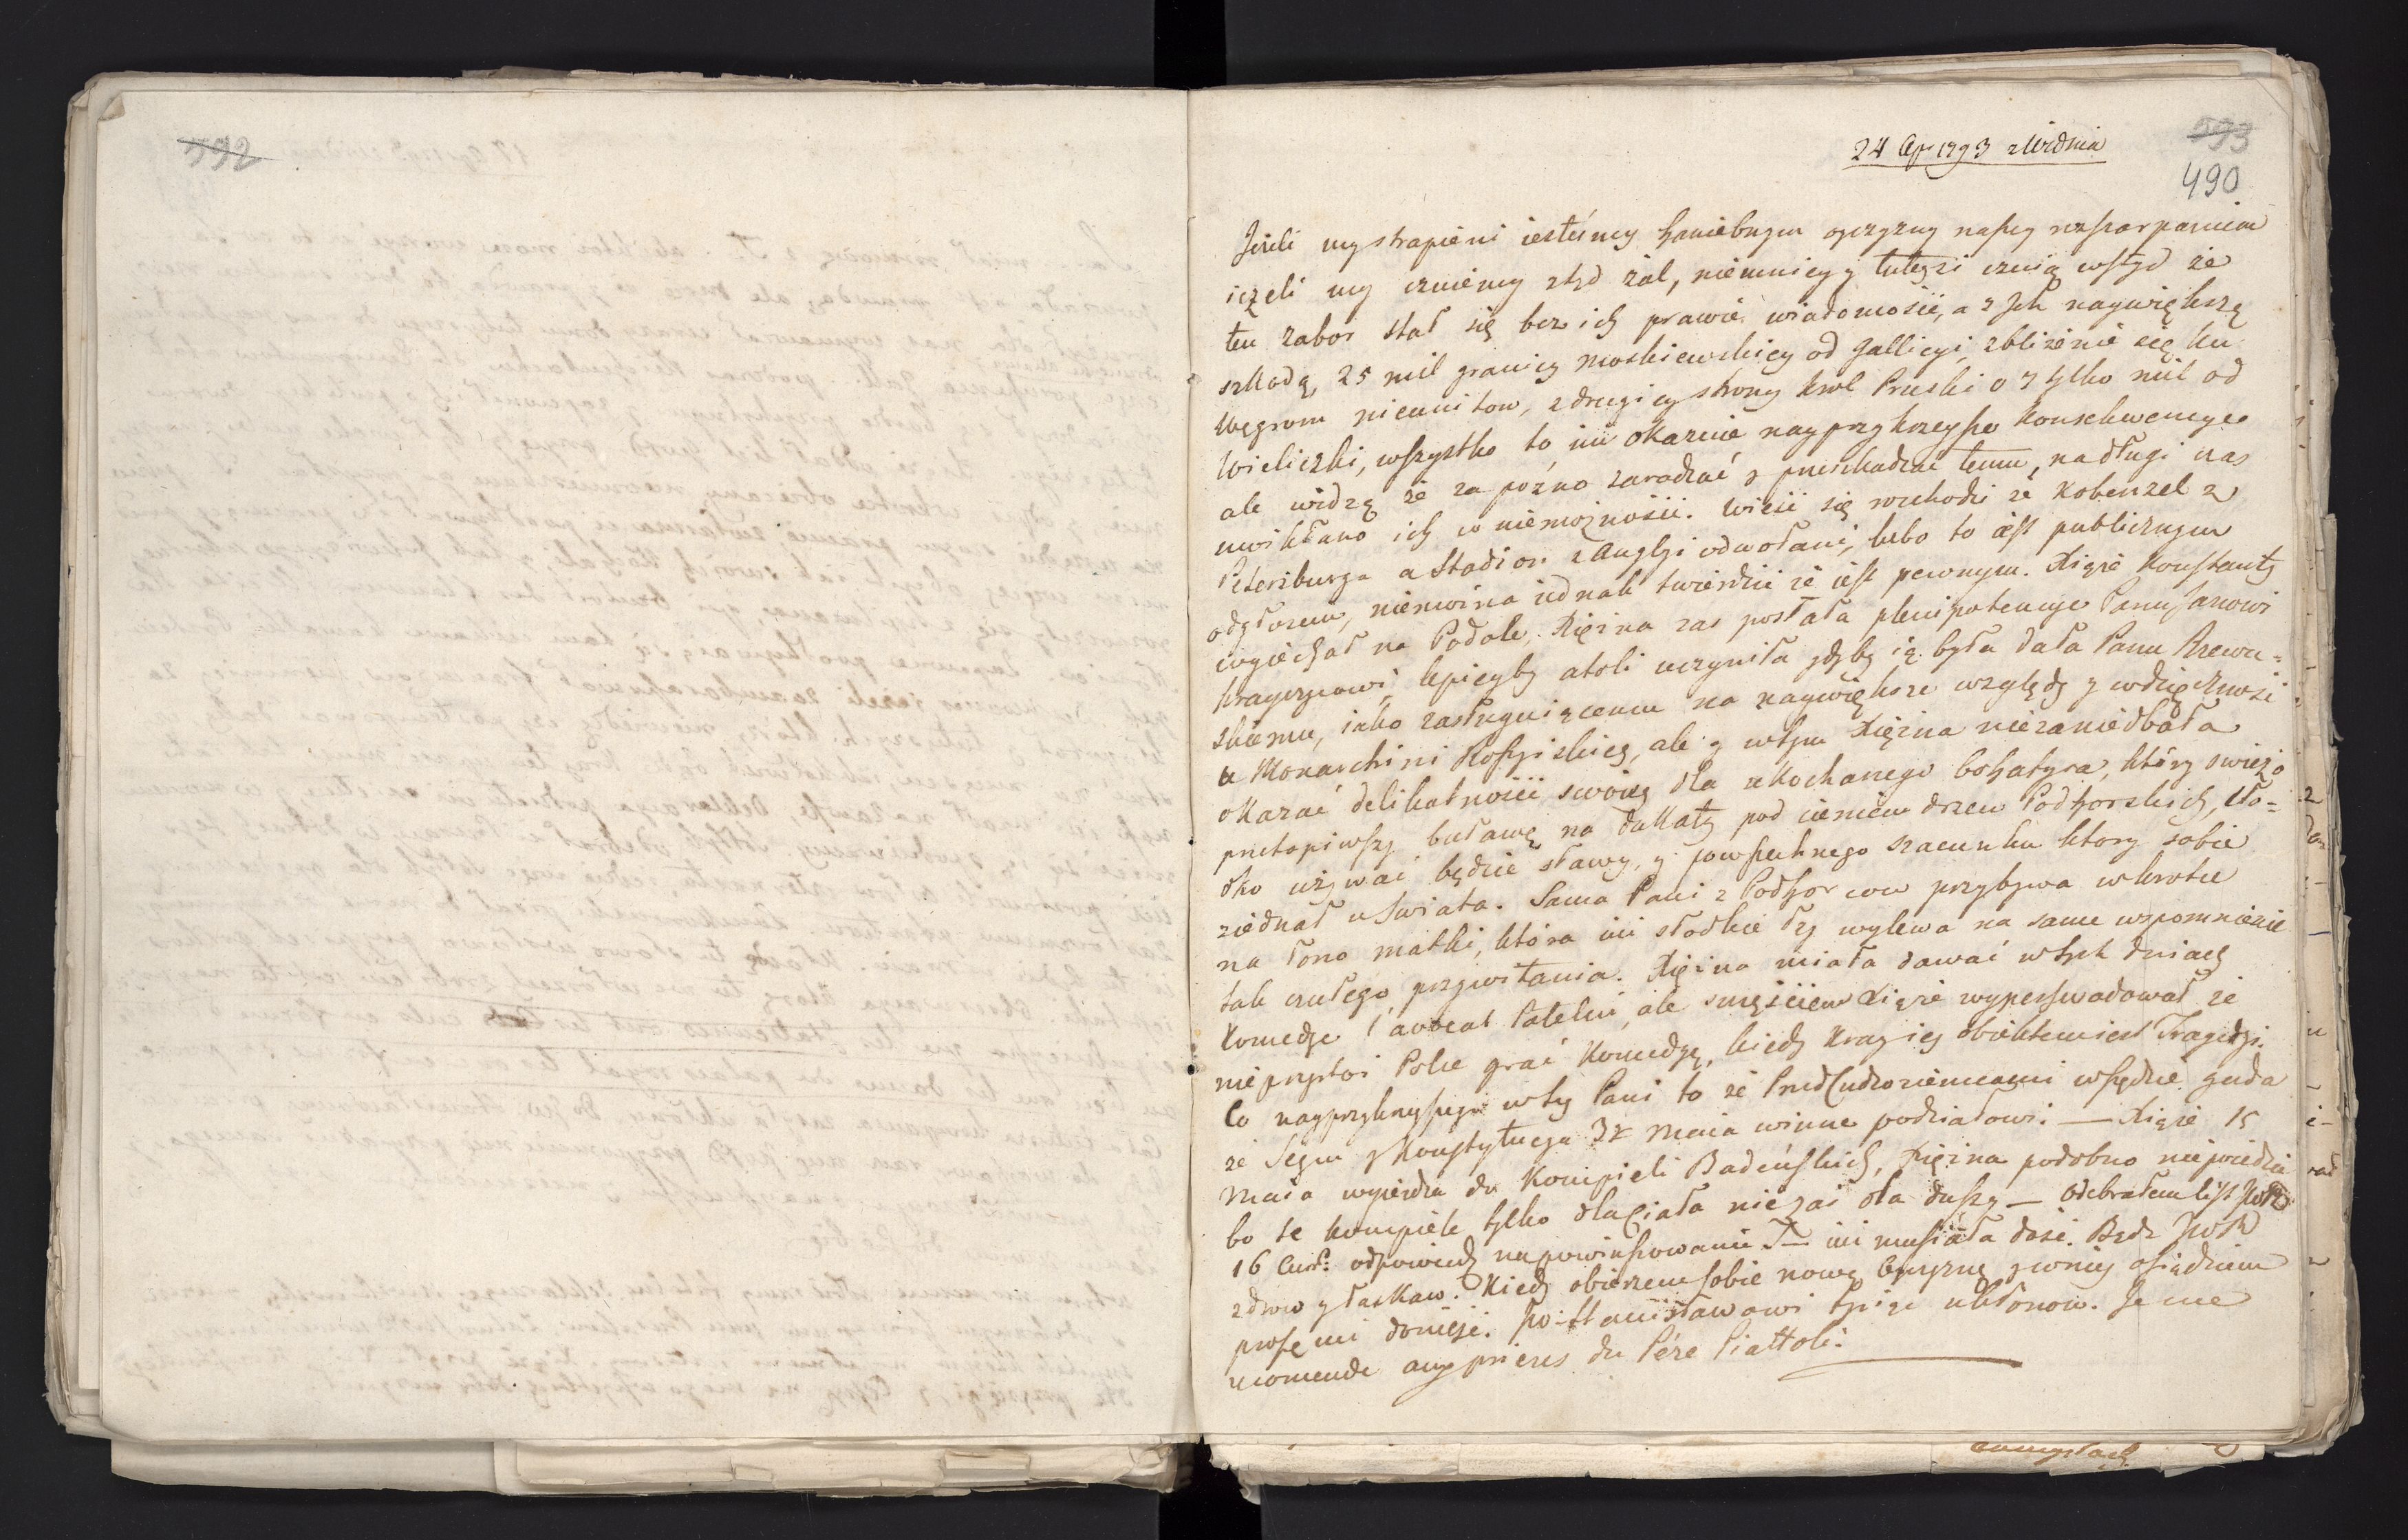 592
593
24 Apr 1793 z Widnia
490
Jeżeli my strapieni iesteśmy haniebnym oyczyzny naszey rozszarpaniem
ieżeli my czuiemy ztąd żal, niemniey y tuteysi czuią wstyd że
ten zabor stał się bez ich prawie wiadomości, a z Jch naywiększą
szkodą, 25 mil granicy moskiewskiey od Gallicyi, zbliżenie się ku
Węgrom nieunitow, z drugiey strony Krol Pruski o 7 tylko mil od
Wieliczki, wszystko to im okazuie nayprzykrzeysze konsekwencye
ale widzą że za poźno zaradzać y przeszkadzać temu, nadługi czas
uwikłano ich w niemożności. Wieść się rozchodzi że Kobenzel z
Petersburga a Stadion z Anglyi odwołani, lubo to iest publicznym
odgłosem, niemożna iednak twierdzić że iest pewnym. Xiąże Konstanty
wyiechał na Podole, Xiężna zas posłała plenipotencye Panu Janowi
Krayczycowi, lepieyby atoli uczyniła gdyby ią była dała Panu Rzewu=
skiemu, iako zasługuiącemu na naywiększe względy y wdzięczność
u Monarchini Rossyiskiey, ale y wtym Xiężna niezaniedbała
okazać delikatności swoiey dla ukochanego bohatyra, który swieżo
przetopiwszy buławę na dukaty pod cieniem drzew Podhorskich, sło=
dko używać będzie sławy, y powszechnego szacunku ktory sobie
ziednał u Swiata. Sama Pani z Podhorcow przybywa wkrotce
na łono matki, która iuż słodkie łzy wylewa na same wspomnienie
tak czułego przywitania. Xiężna miała dawać w tych dniach
Komedye l'avocat Patelin, ale szczęściem Xiąże wyperswadował że
nieprzystoi Polce grać Komedyę, kiedy Kray iey obiektem iest Tragedyi.
Co nayprzykrzeyszego w tey Pani to że Przed Cudzoziemcami wszędzie gada
że Seym y Konstytucya 3z Maia winne podziałowi. — Xiąże 15
Maia wyieżdża do Kompieli Badeńskich, Xiężna podobno niepoiedzie
bo te kompiele tylko dla Ciała nie zaś dla duszy — Odebrałem list
16 Curr: odpowiedz na powinszowanie T— iuż musiała dość. Bądz
zdrow y łaskaw. Kiedy obierzem sobie nową Oyczyznę y wniey osiądziem
proszę mi donieść. Po: Stanisławowi tysiąc ukłonow. Je me
recomende aux prieres du Pére Piattoli.